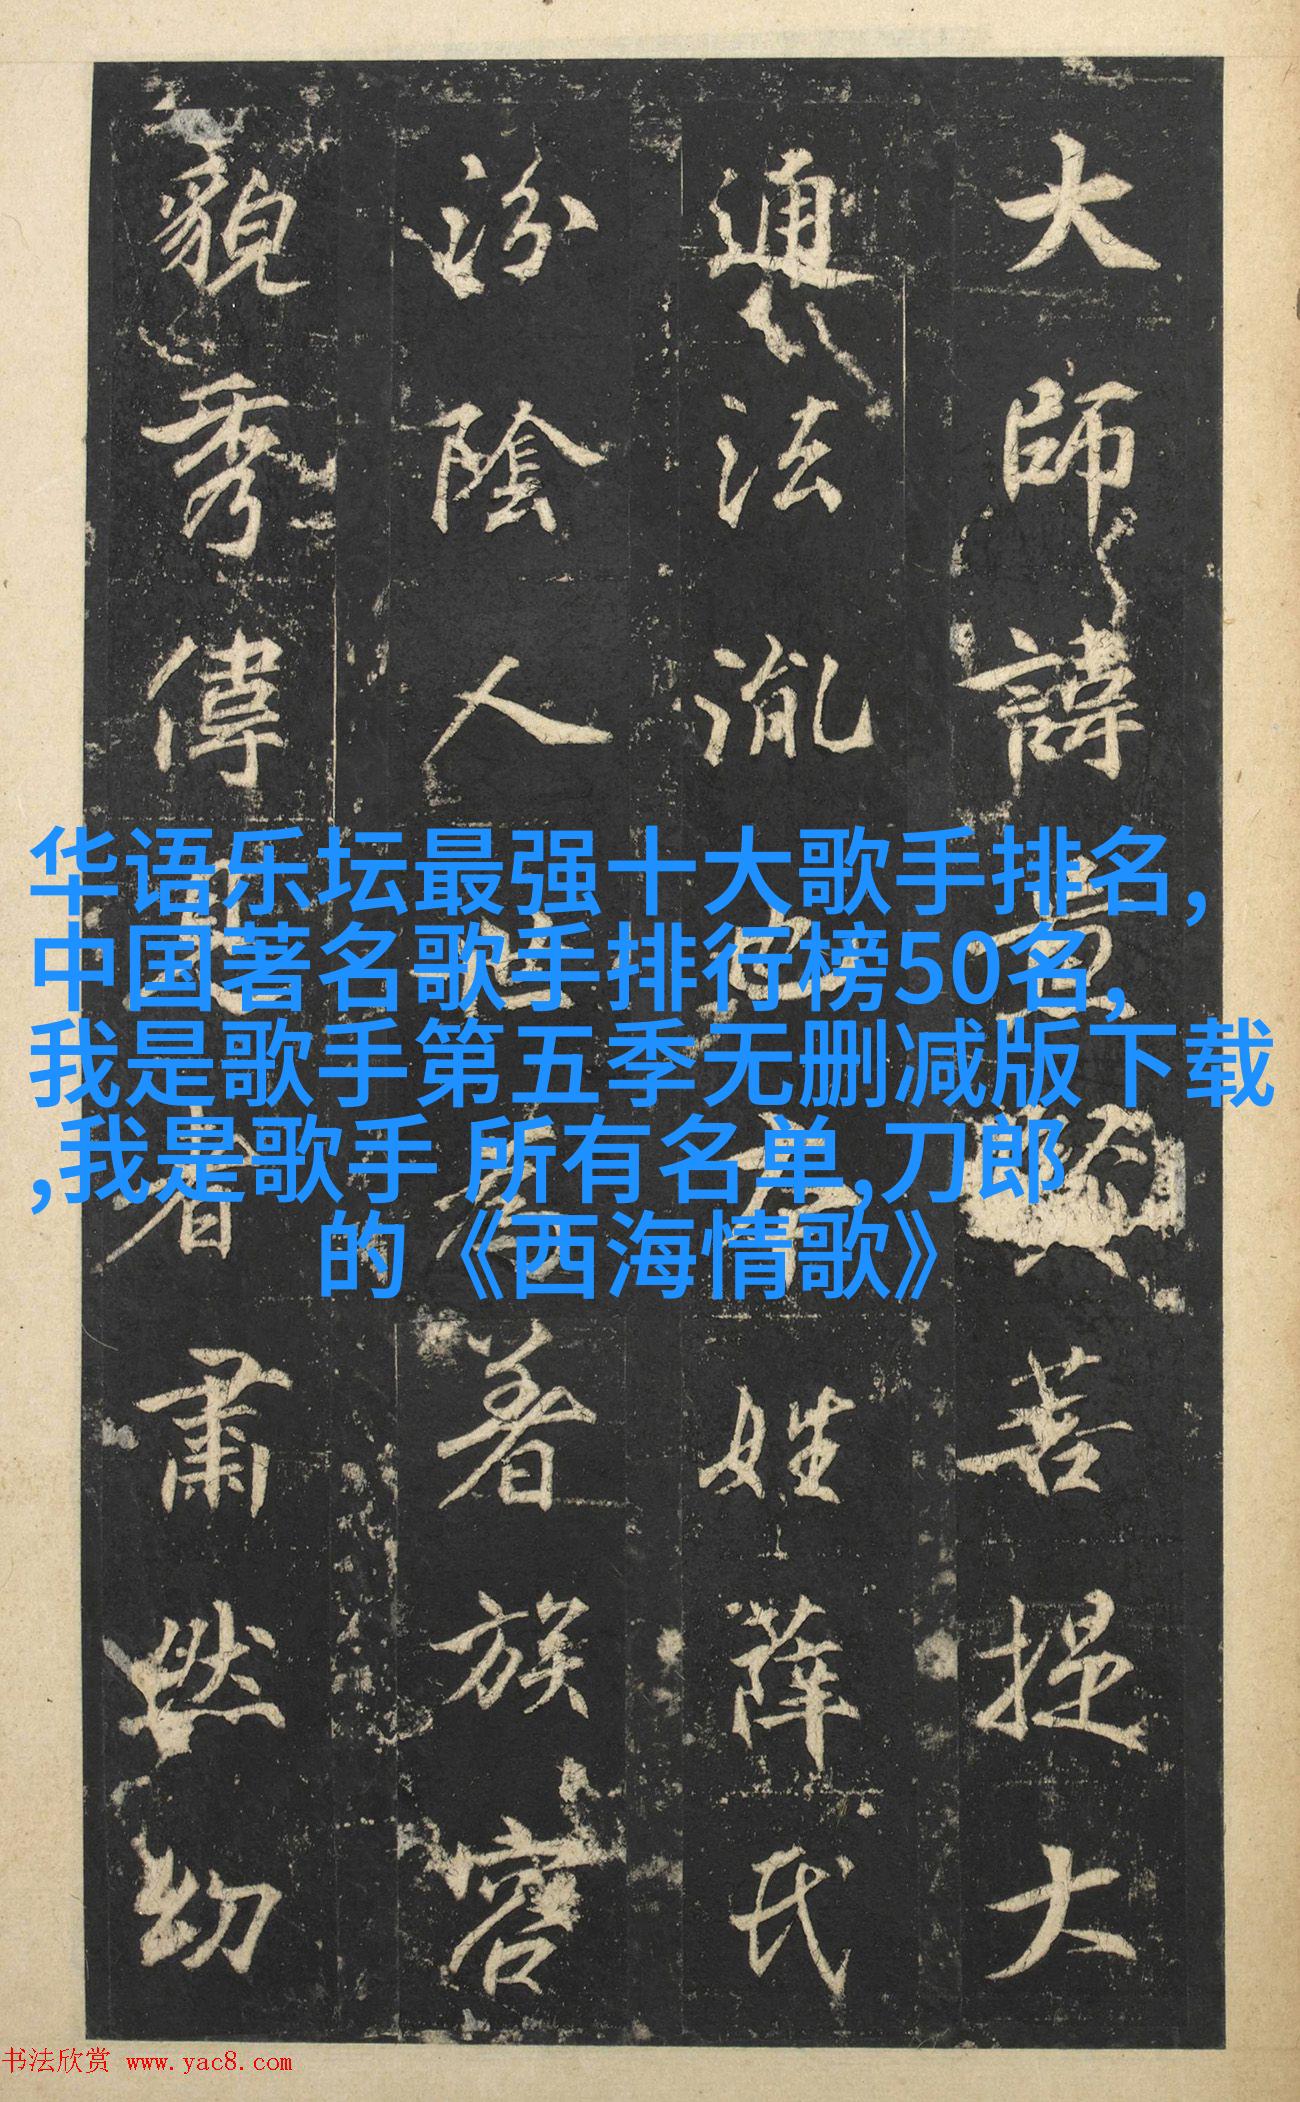 大師諱菩提大
通法也姓薛氏
汾陰人著族容
貌秀偉者肅然幼
华语乐坛最强十大歌手排名,
中国著名歌手排行榜50名,
我是歌手第五季无删减版下载
,我是歌手 所有名单,刀郎
的《西海情歌》
书法欣赏 www.yac8.com